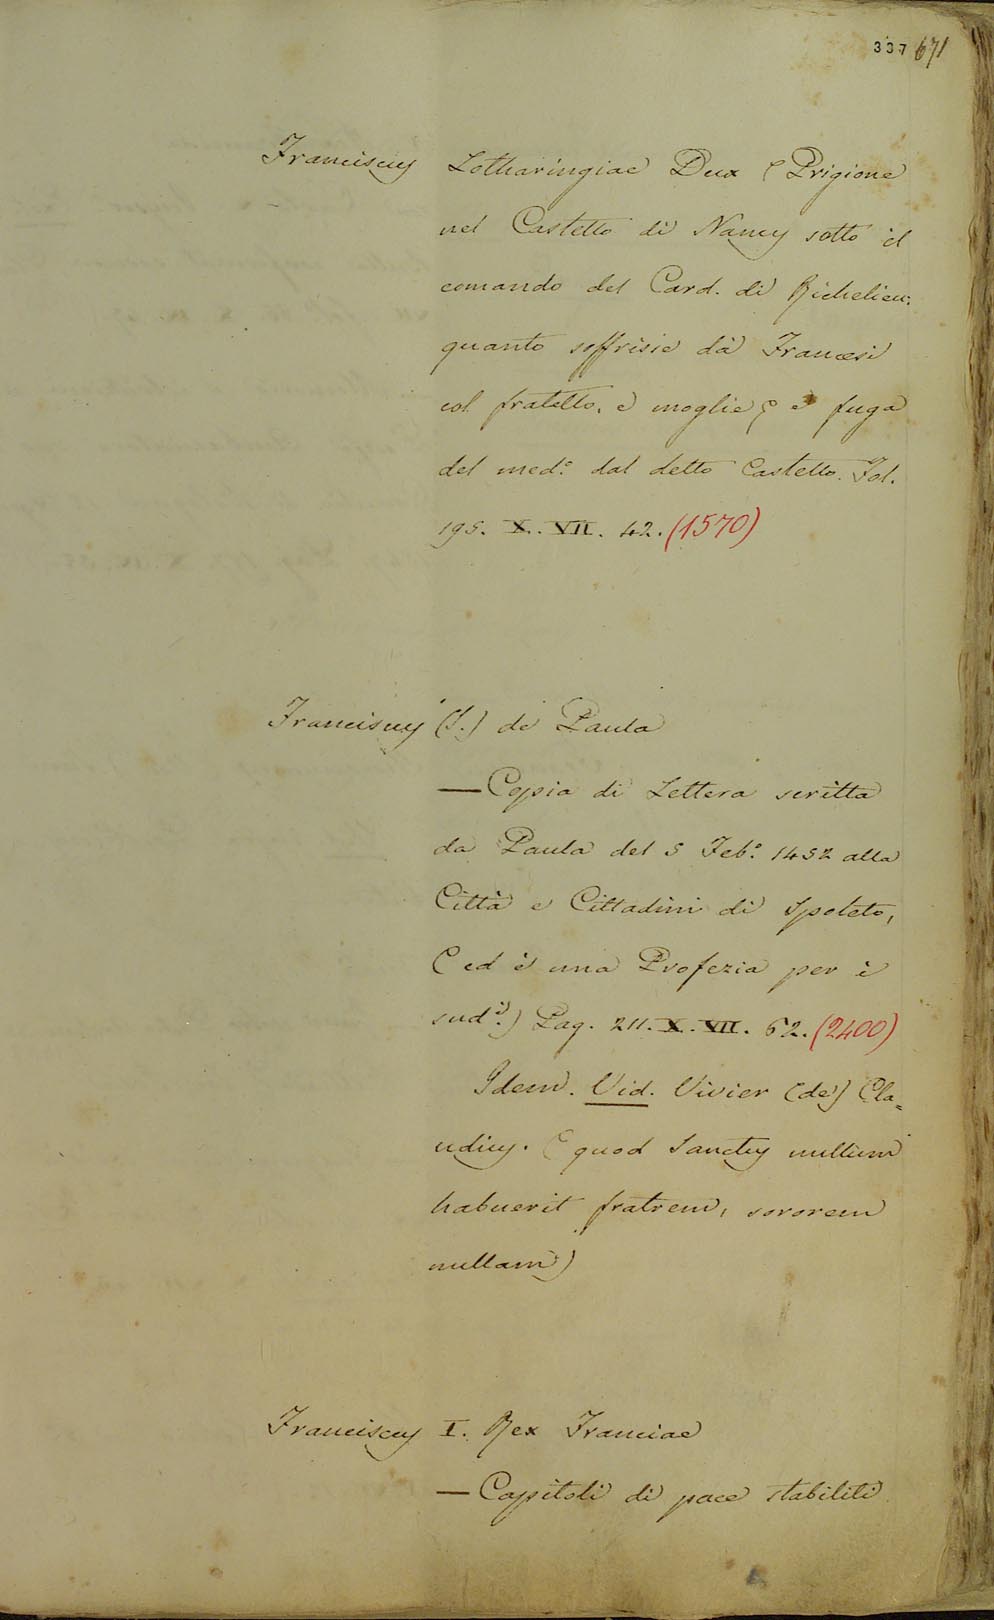 337 671
Franciscus Lotharingiae Dux (Prigione
nel Castello di Nancy sotto il
comando del Card. di Richelieu:
quanto soffrisse dà Francesi
col fratello, e moglie; e fuga
del med.º dal detto Castello. Fol.
195. X. VII. 42. (1570)
Franciscus (S.) de Paula
— Copia di Lettera scritta
da Paula del 5 Feb.º 1452 alla
Città e Cittadini di Spoleto,
(ed è una Profezia per i
sud.i) Pag. 211. X. VII. 62. (2400)
Idem. Vid. Vivier (de) Cla=
udius. (quod Sanctus nullum
habuerit fratrem, sororem
nullam)
Franciscus I. Rex Franciae
— Cappitoli di pace stabiliti